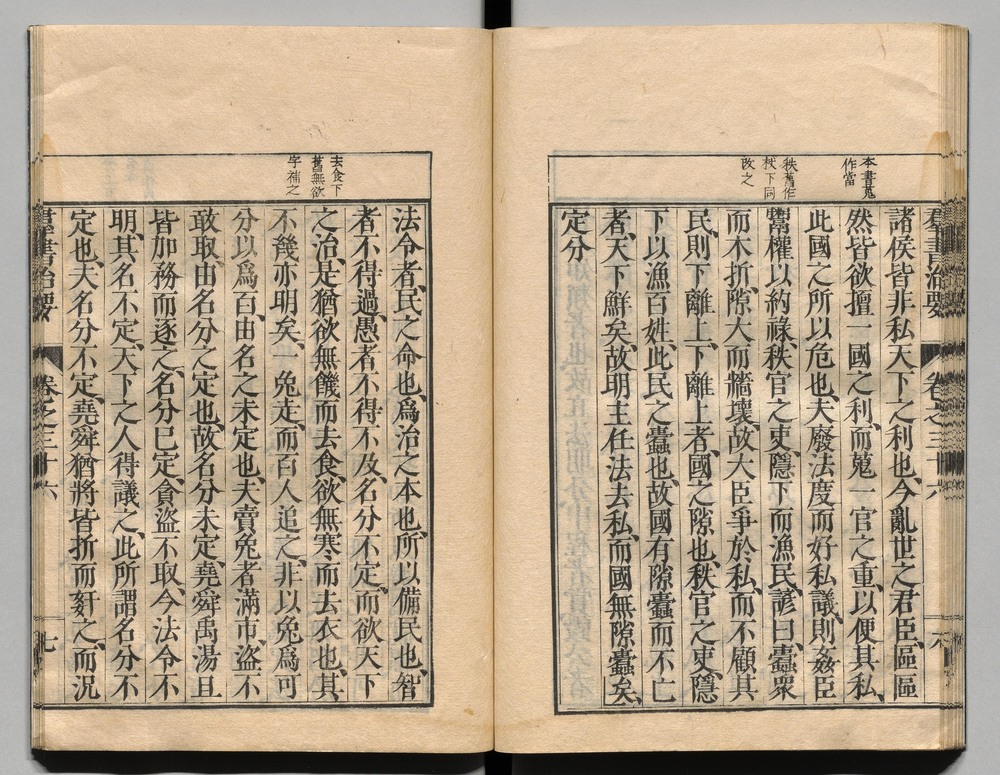 本書蒐
作當
秩舊作
秩下同
改之
諸侯皆非私天下之利也、今亂世之君臣、區區
然皆欲擅一國之利、而蒐一官之重、以便其私、
此國之所以危也、夫廢法度而好私議、則姦臣
鬻權以約祿、秩官之吏、隱下而漁民、諺曰、蠹衆
而木折、隙大而牆壞、故大臣爭於私、而不顧其
民、則下離上、下離上者、國之隙也、秩官之吏、隱
下以漁百姓、此民之蠹也、故國有隙蠹而不亡
者、天下鮮矣、故明主任法去私、而國無隙蠹矣、
定分
羣書治要
卷之三十六
八
去食下
舊無欲
字補之
法令者、民之命也、爲治之本也、所以備民也、智
者不得過、愚者不得不及、名分不定、而欲天下
之治、是猶欲無饑而去食、欲無寒而去衣也、其
不幾亦明矣、一兔走、而百人追之、非以兔爲可
分以爲百、由名之未定也、夫賣兔者滿市、盜不
敢取、由名分之定也、故名分未定、堯舜禹湯且
皆加務而逐之、名分已定、貪盜不取、今法令不
明、其名不定、天下之人得議之、此所謂名分不
定也、夫名分不定、堯舜猶將皆折而姧之、而況
羣書治要
卷之三十六
九